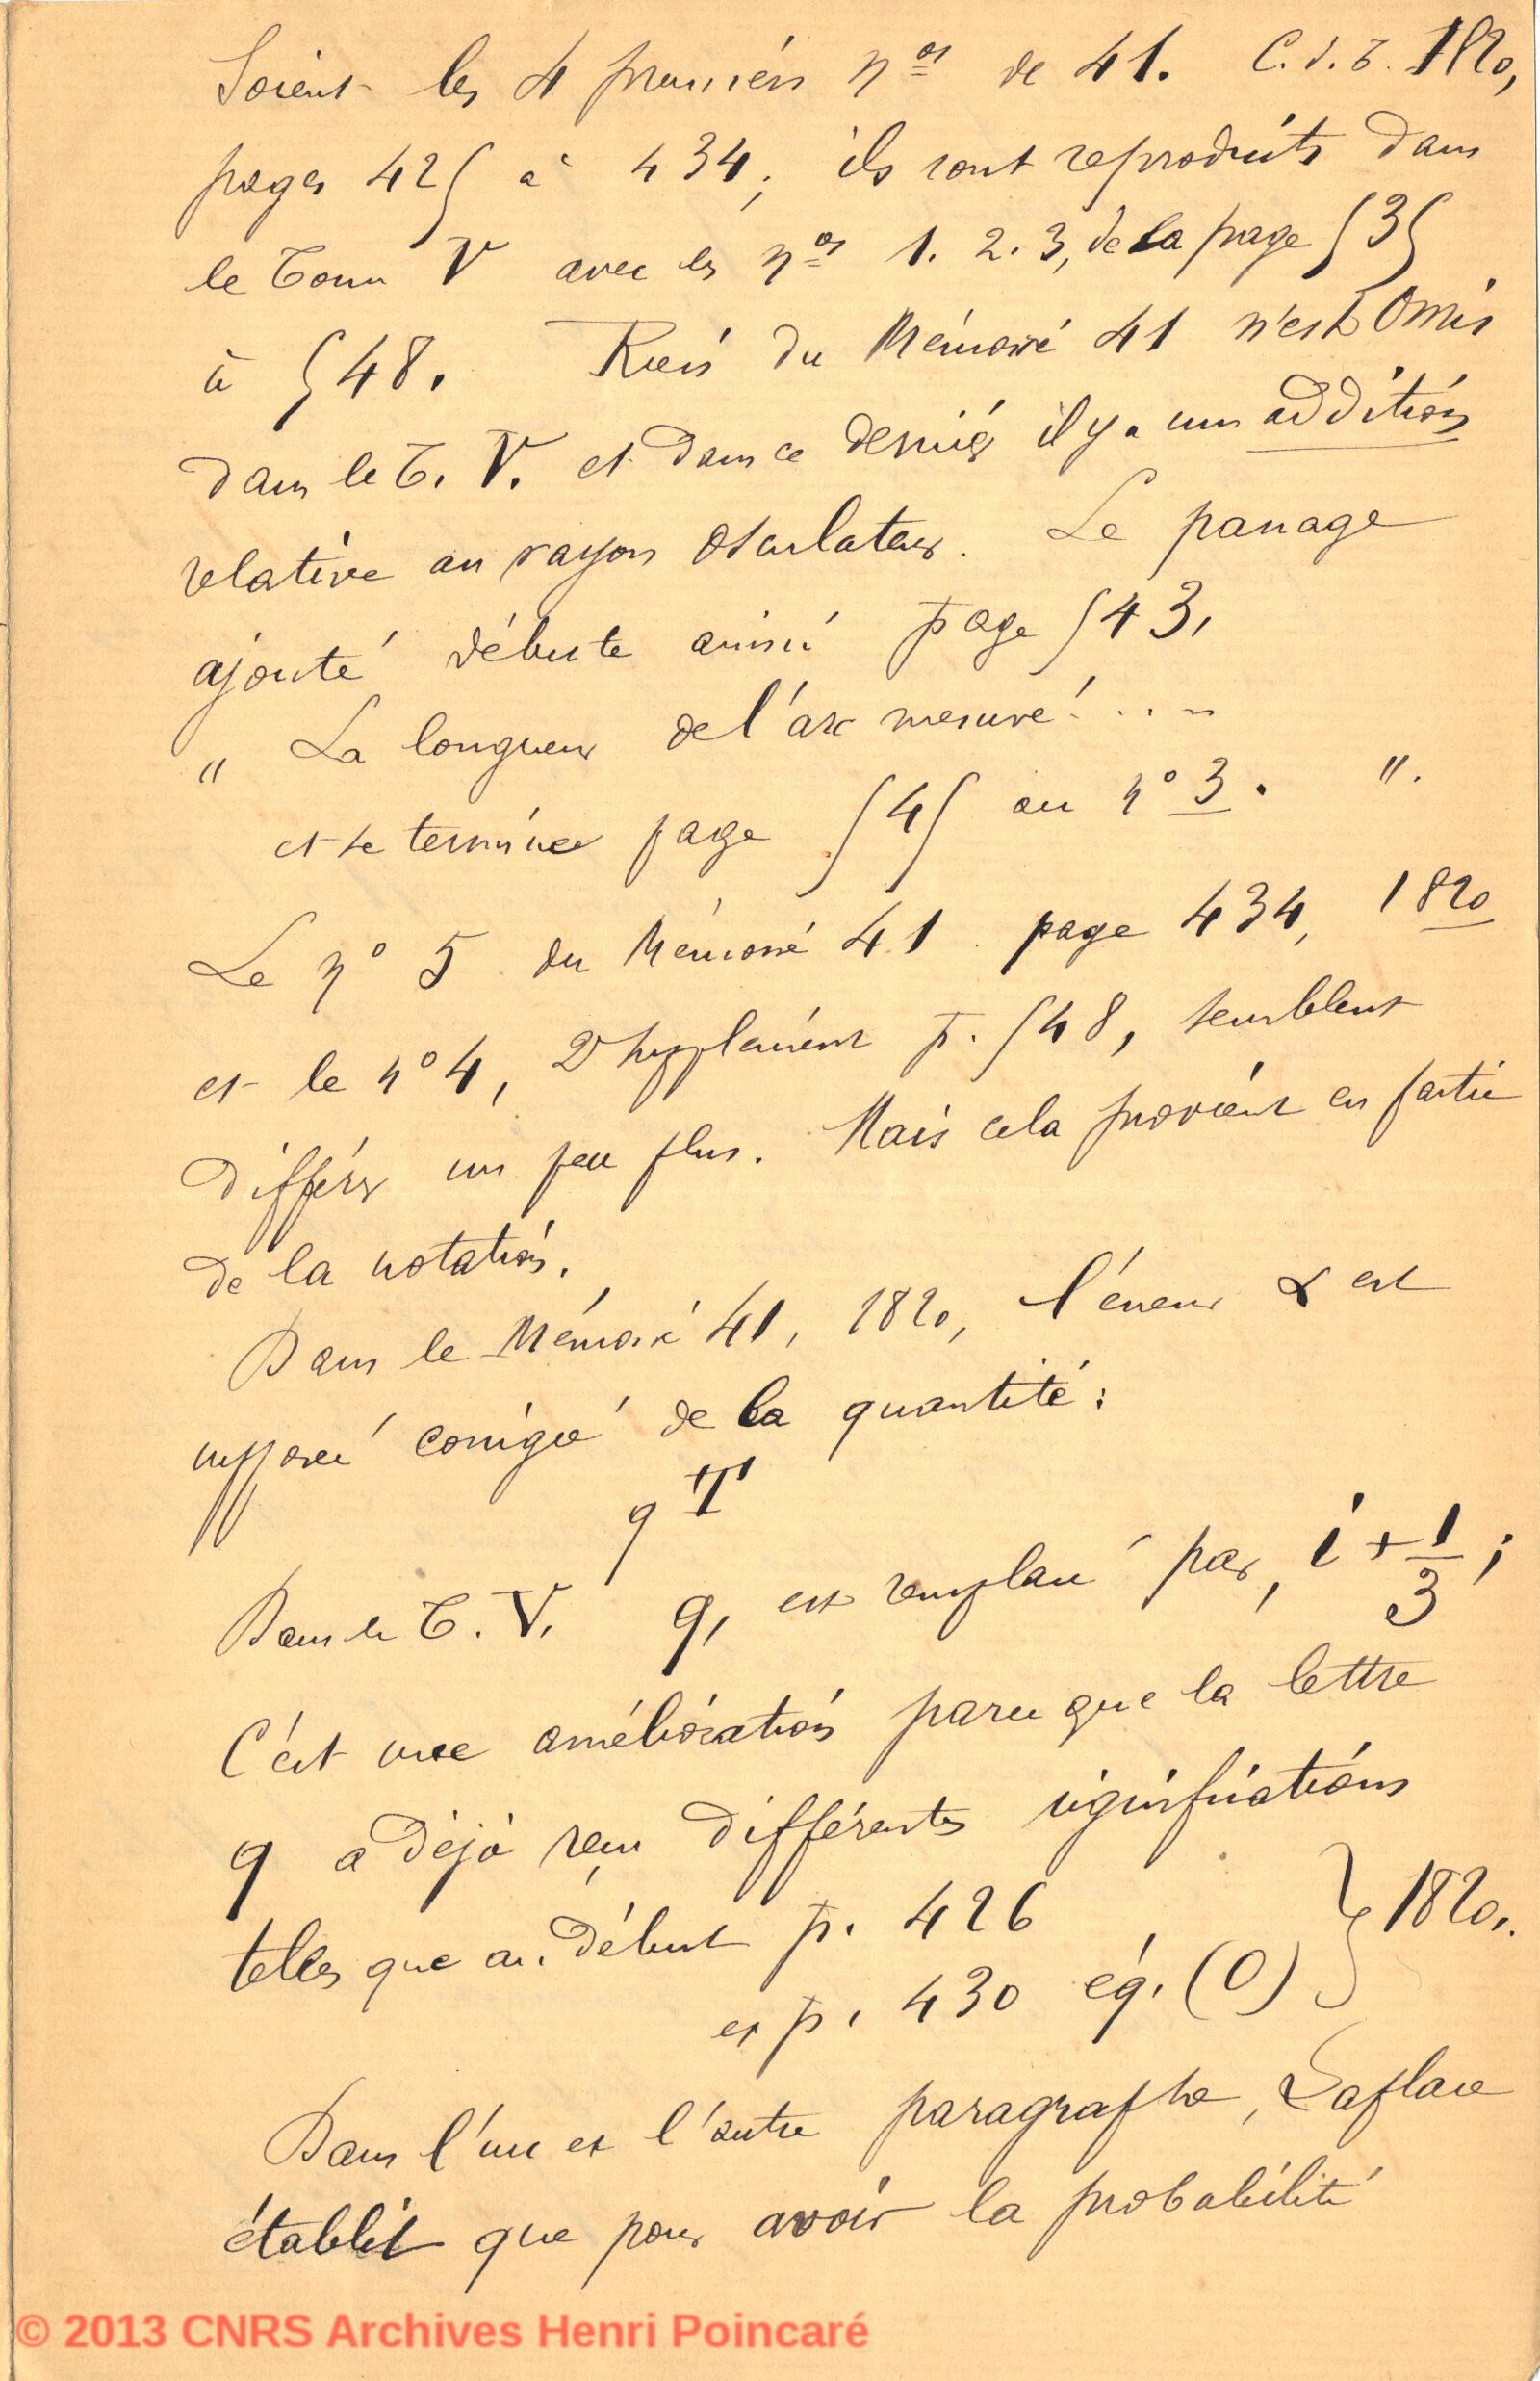 Soient les 4 premiers nos de 41. C.d.T. 1820,
pages 425 à 434; ils sont reproduits dans
le Tome V avec les nos 1. 2. 3, de la page 535
à 548. Rien du Mémoire 41 n'est omis
dans le T. V. et dans ce dernier il y a une addition
relative au rayon osculateur. Le passage
ajouté débute ainsi page 543,
" La longueur de l'arc mesuré....
et se termine page 545 au n° 3. ".
Le n° 5 du Mémoire 41 page 434, 1820
et le n° 4, 2d supplément p. 548, semblent
différer un peu plus. Mais cela provient en partie
de la notation.
Dans le Mémoire 41, 1820, l'erreur α est
supposée corrigée de la quantité:
qT
Dans le T. V. q, est remplacé par, i + 1/3;
C'est une amélioration parce que la lettre
q a déjà reçu différentes significations
telles que au début p. 426
et p. 430 éq. (0) } 1820.
Dans l'un et l'autre paragraphe, Laplace
établit que pour avoir la probabilité
© 2013 CNRS Archives Henri Poincaré